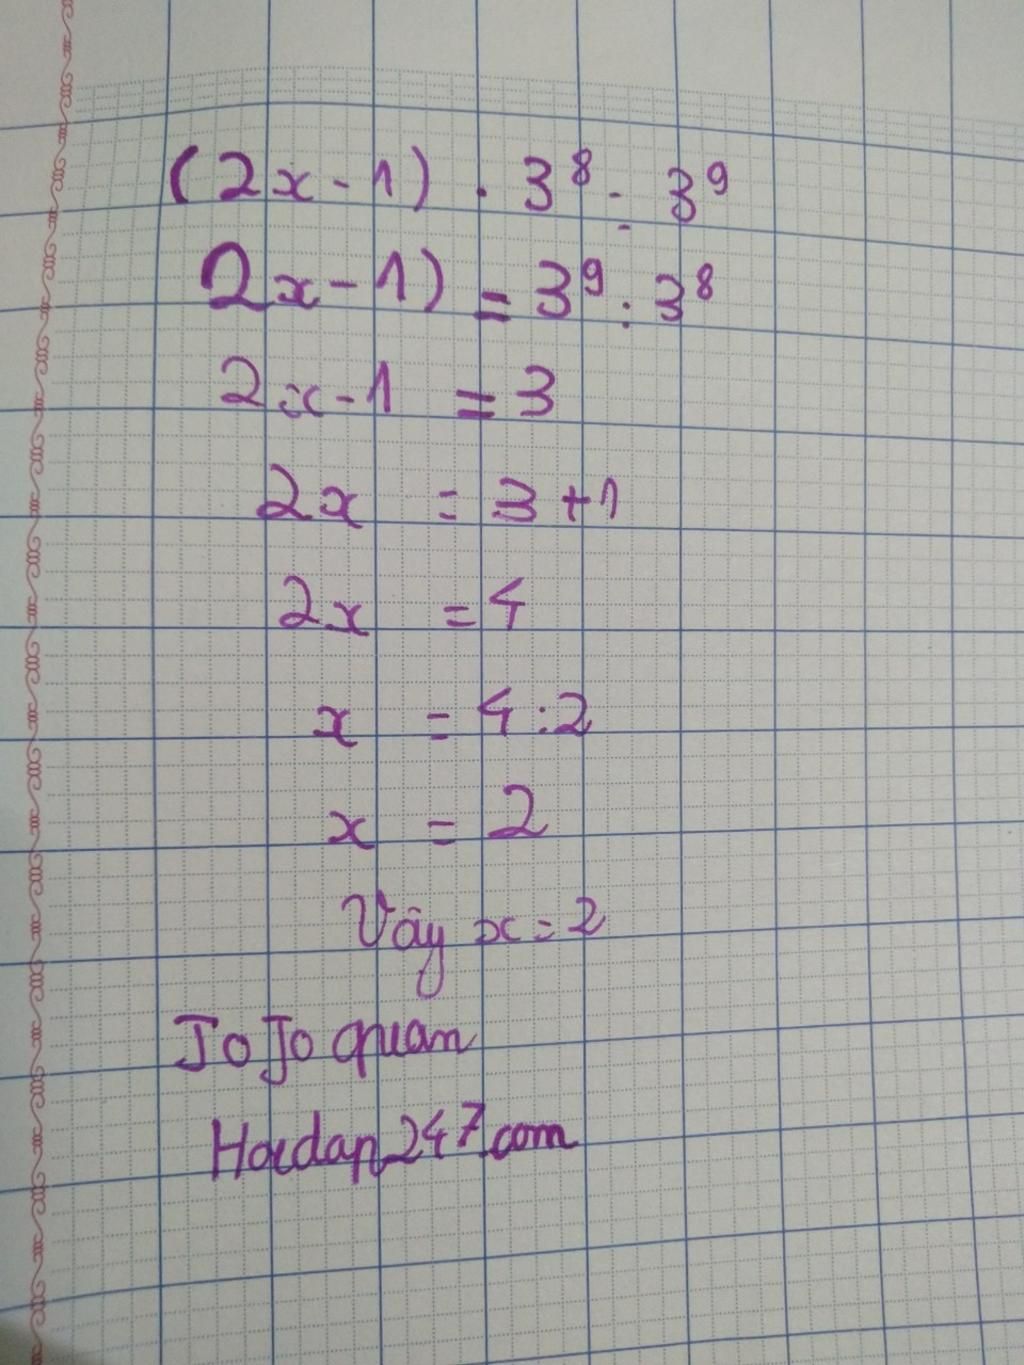 (2x - 1) . 3⁸ = 3⁹
2x - 1) = 3⁹ : 3⁸
2x - 1 = 3
2x = 3 + 1
2x = 4
x = 4 : 2
x = 2
Vậy x = 2
JoJo quan
Hoidap247.com